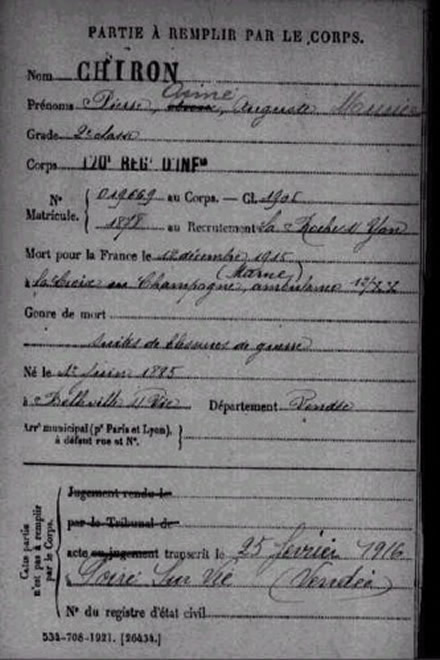 PARTIE À REMPLIR PAR LE CORPS.
Nom CHIRON
Aimé
Prénoms Pierre, Auguste
Grade 2e classe
Corps 120e REGt D'INFie
N° Matricule. 019669 au Corps. — Cl. 1905
1878 au Recrutement La Roche s/ Yon
Mort pour la France le décembre 1915
(Marne)
à la Croix en Champagne, ambulance
Genre de mort
suites de blessures de guerre
Né le 1er juin 1885
à Belleville s/ Vie Département Vendée
Arrt municipal (pr Paris et Lyon), à défaut rue et N°.
Cette partie n'est pas à remplir par le Corps.
Jugement rendu le
par le Tribunal de
acte ou jugement transcrit le 25 février 1916
à Poiré Sur Vie (Vendée)
N° du registre d'état civil
534-708-1921. [26434.]